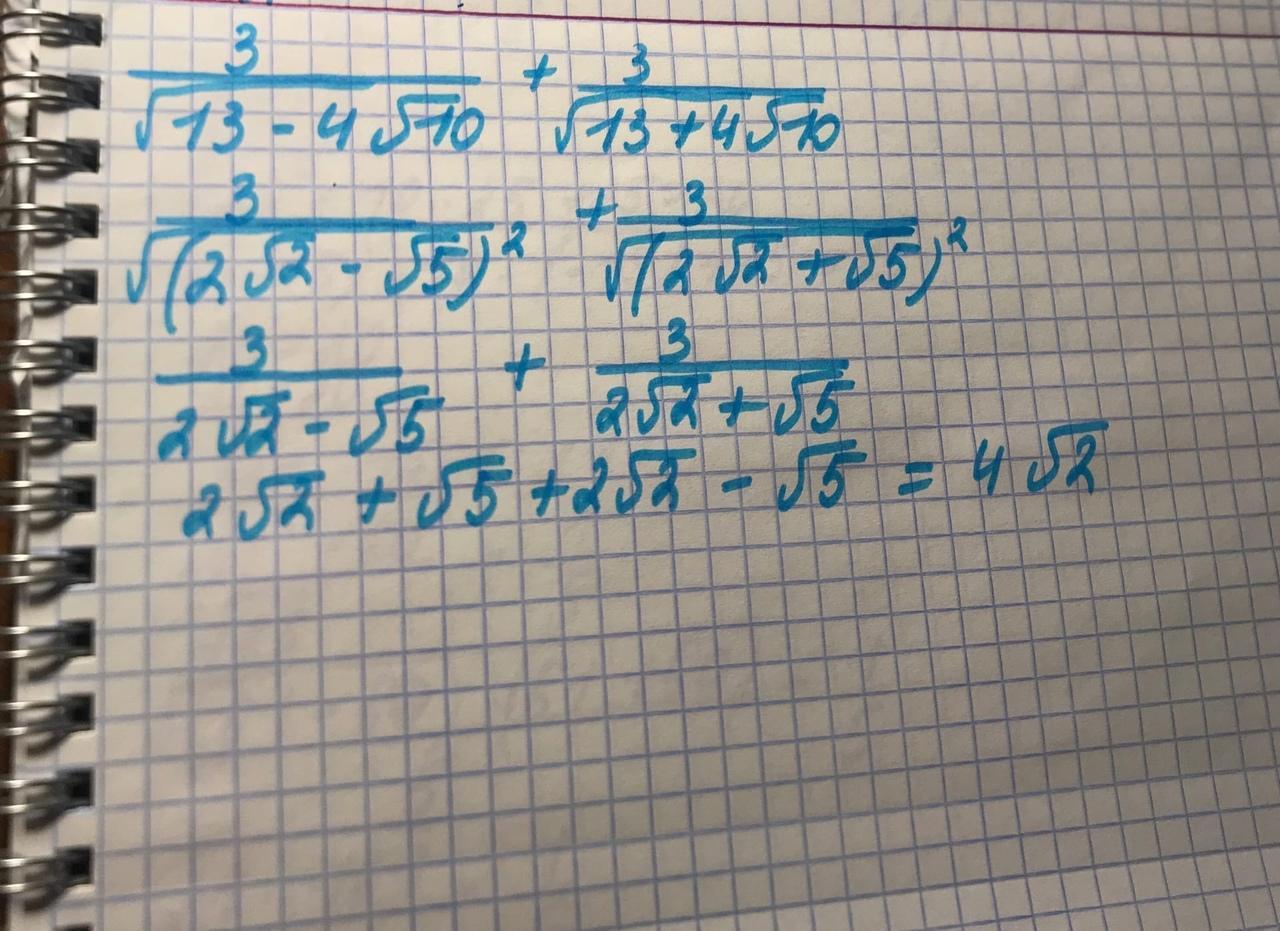 3/√(13 - 4√10) + 3/√(13 + 4√10)
3/√(2√2 - √5)² + 3/√(2√2 + √5)²
3/(2√2 - √5) + 3/(2√2 + √5)
2√2 + √5 + 2√2 - √5 = 4√2